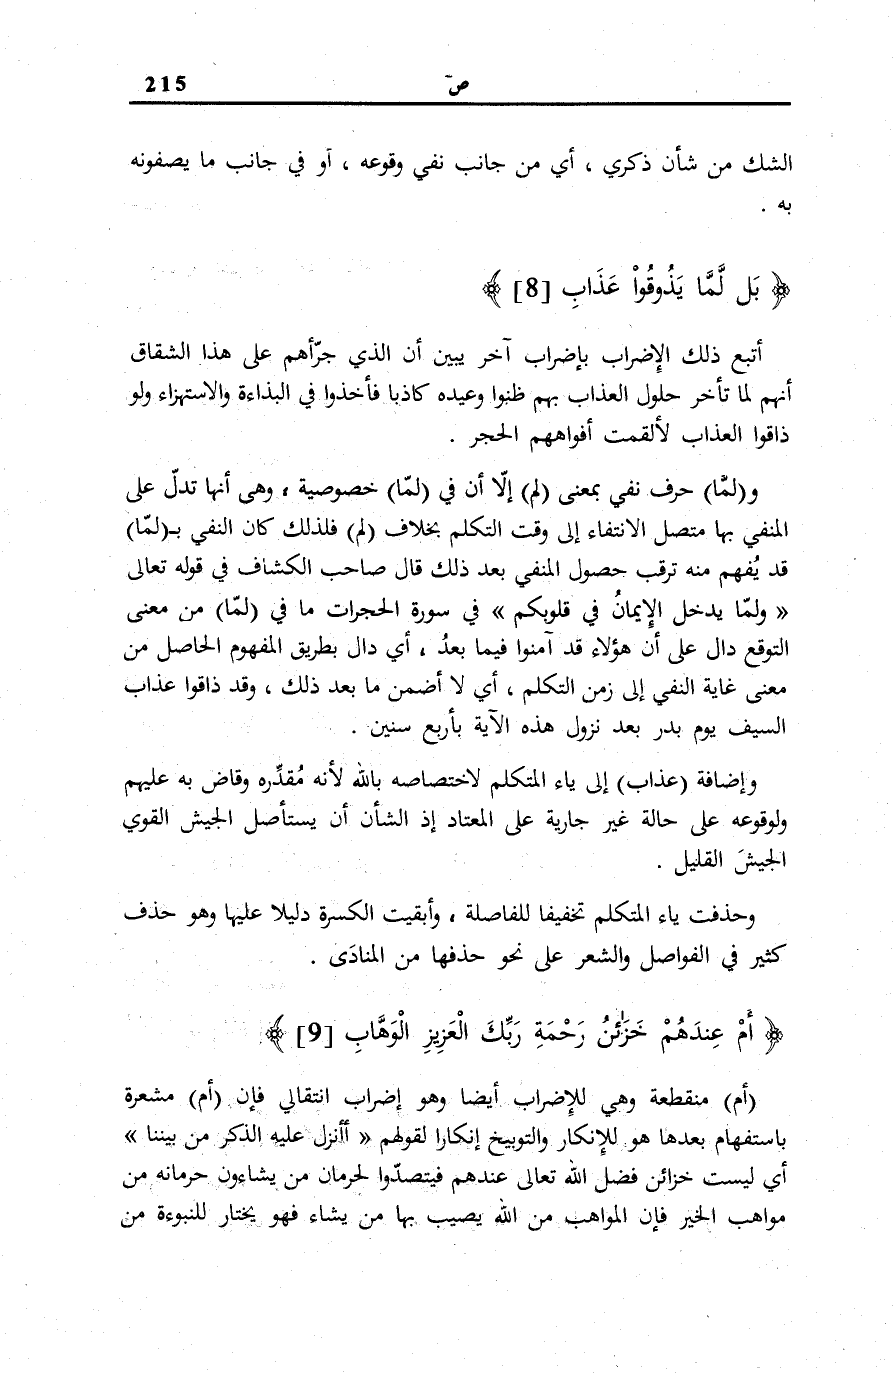 215
صۤ
الشك من شأن ذكري ، أي من جانب نفي وقوعه ، أو في جانب ما يصفونه
به .
﴿ بَل لَّمَّا يَذُوقُواْ عَذَابِ [8] ﴾
أتبع ذلك الإِضراب بإضراب آخر يبين أن الذي جرّأهم على هذا الشقاق
أنهم لما تأخر حلول العذاب بهم ظنوا وعيده كاذبا فأخذوا في البذاءة والاستهزاء ولو
ذاقوا العذاب لألقمت أفواههم الحجر .
و(لمَّا) حرف نفي بمعنى (لم) إلّا أن في (لمّا) خصوصية ، وهي أنها تدلّ على
المنفي بها متصل الانتفاء إلى وقت التكلم بخلاف (لم) فلذلك كان النفي بـ(لمّا)
قد يُفهم منه ترقب حصول المنفي بعد ذلك قال صاحب الكشاف في قوله تعالى
« ولمّا يدخل الإِيمانُ في قلوبكم » في سورة الحجرات ما في (لمّا) من معنى
التوقع دال على أن هؤلاء قد آمنوا فيما بعدُ ، أي دال بطريق المفهوم الحاصل من
معنى غاية النفي إلى زمن التكلم ، أي لا أضمن ما بعد ذلك ، وقد ذاقوا عذاب
السيف يوم بدر بعد نزول هذه الآية بأربع سنين .
وإضافة (عذاب) إلى ياء المتكلم لاختصاصه بالله لأنه مُقدِّره وقاض به عليهم
ولوقوعه على حالة غير جارية على المعتاد إذ الشأن أن يستأصل الجيش القوي
الجيشَ القليل .
وحذفت ياء المتكلم تخفيفا للفاصلة ، وأبقيت الكسرة دليلا عليها وهو حذف
كثير في الفواصل والشعر على نحو حذفها من المنادَى .
﴿ أَمْ عِندَهُمْ خَزَآئِنُ رَحْمَةِ رَبِّكَ الْعَزِيزِ الْوَهَّابِ [9] ﴾
(أم) منقطعة وهي للإِضراب أيضا وهو إضراب انتقالي فإن (أم) مشعرة
باستفهام بعدها هو للإِنكار والتوبيخ إنكارا لقولهم « أأنزل عليه الذكر من بيننا »
أي ليست خزائن فضل الله تعالى عندهم فيتصدّوا لحرمان من يشاءون حرمانه من
مواهب الخير فإن المواهب من الله يصيب بها من يشاء فهو يختار للنبوءة من